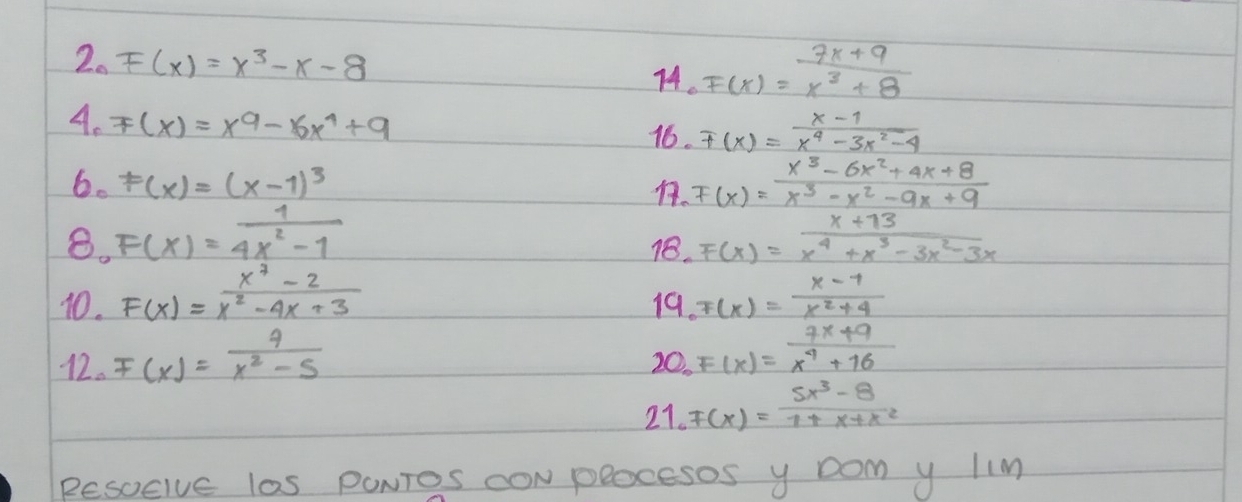 2. F(x) = x³ - x - 8
4. F(x) = x⁹ - 16x⁴ + 9
6. F(x) = (x - 1)³
8. F(x) = 1 / 4x² - 1
10. F(x) = x⁷ - 2 / x² - 4x + 3
12. F(x) = 9 / x² - 5
14. F(x) = 7x + 9 / x³ + 8
16. F(x) = x - 1 / x⁴ - 3x² - 4
17. F(x) = x³ - 6x² + 4x + 8 / x³ - x² - 9x + 9
18. F(x) = x + 13 / x⁴ + x³ - 3x² - 3x
19. F(x) = x - 1 / x² + 4
20. F(x) = 7x + 9 / x⁴ + 16
21. F(x) = 5x³ - 8 / 1 + x + x²
RESUELVE los PUNTOS CON PROCESOS y DOM y lIM